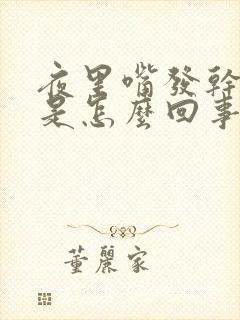 夜里嘴發幹
是怎麼回事
董麗家